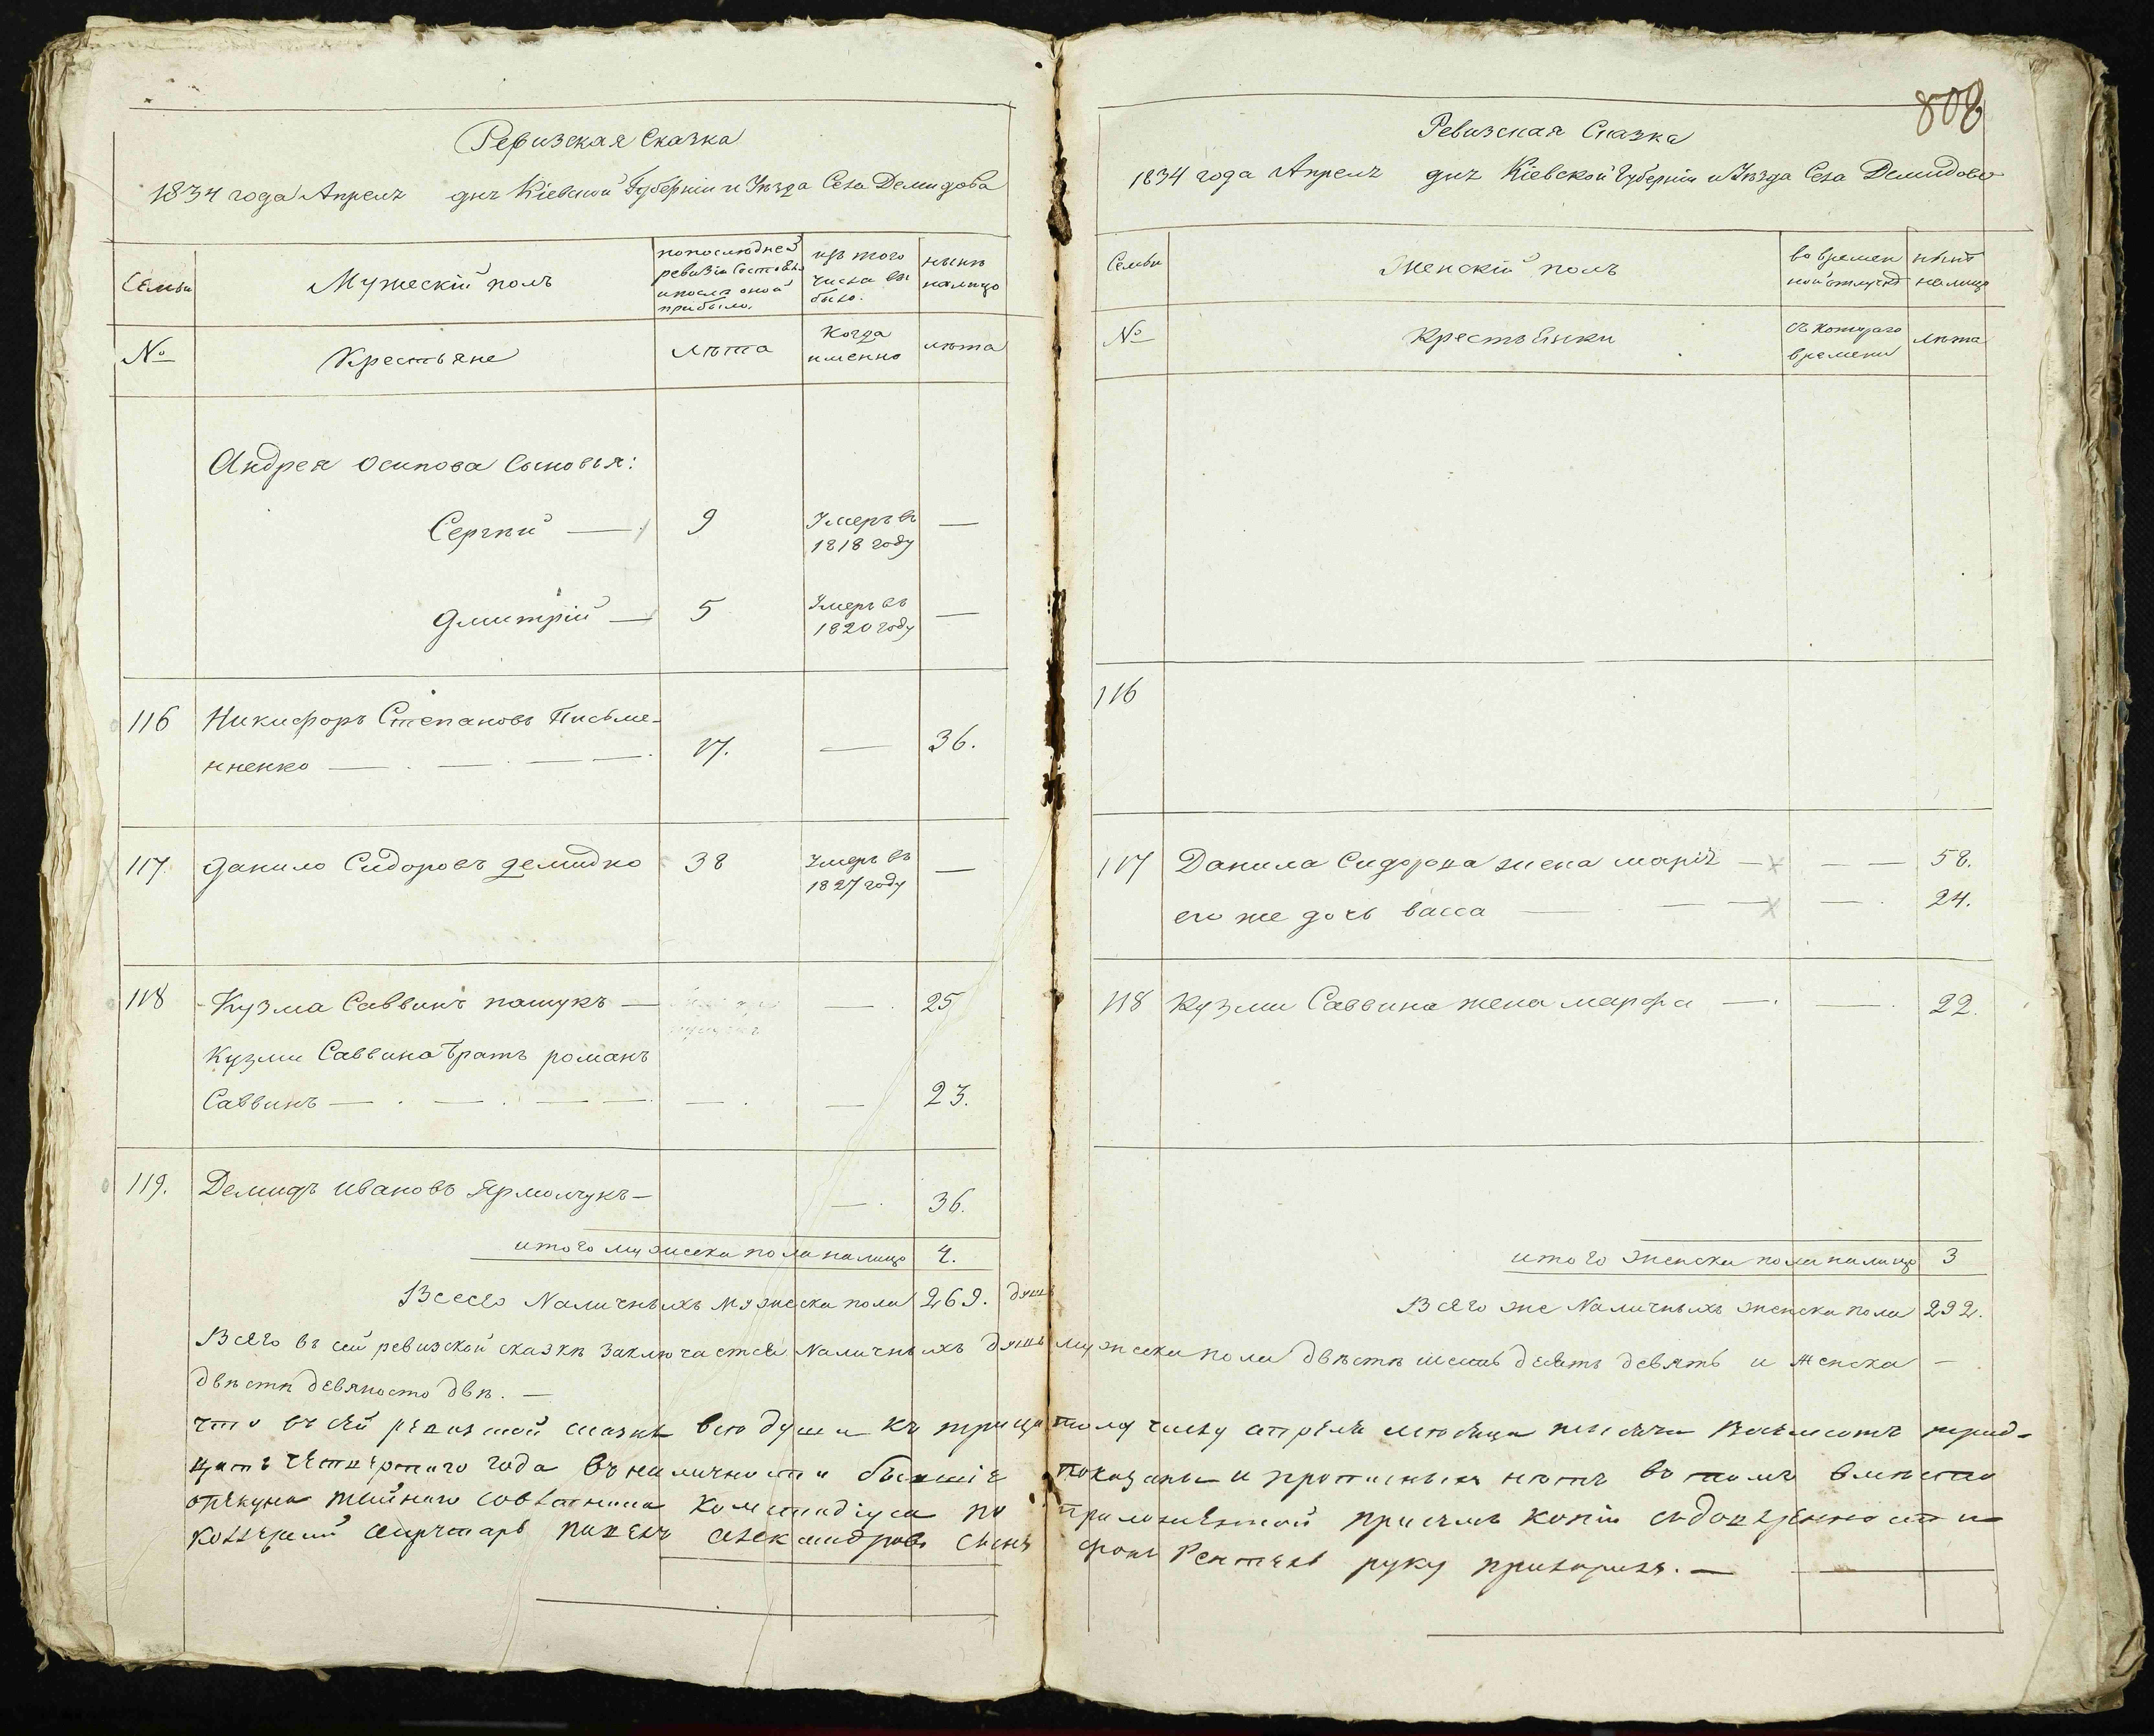 Ревизская Сказка
1834 года Апреля дня Кіевской Губерніи и Уѣзда Села Демидова
Семьи
Мужескій полъ
по последней ревизіи состояло и после оной прибыло.
изъ того числа выбыло.
нынѣ налицо
№
Крестьяне
лѣта
Когда именно
лѣта
Андрея Осипова Сыновья:
Сергѣй — 9 Умеръ въ 1818 году —
Дмитрій — 5 Умеръ въ 1820 году —
116 Никифоръ Степановъ Письме-
нненко — 17. — 36.
117. Данило Сидоровъ Демидко 38 Умеръ въ 1827 году —
118 Кузма Саввинъ пашукъ — — 25
Кузми Саввина братъ романъ
Саввинъ — — — 23.
119. Демидъ Ивановъ Ярмолчукъ — — 36.
итого мужеска пола налицо 4.
Всего Наличныхъ мужеска пола 269. душъ
808
Ревизская Сказка
1834 года Апреля дня Кіевской Губерніи и Уѣзда Села Демидова
Семьи
Женскій полъ
во временной отлучкѣ
нынѣ налицо
№
Крестьянки
съ котораго времени
лѣта
116
117 Данила Сидорова жена марія — — 58.
его же дочь васса — — 24.
118 Кузми Саввина жена марфа — — 22.
итого женска пола налицо 3
Всего же Наличныхъ женска пола 292.
Всего въ сей ревизской сказкѣ заключается Наличныхъ душъ мужеска пола двѣсти шесть десятъ девять и женска —
двѣсти девяносто двѣ. —
что въ сей ревизской сказкѣ всѣ души къ тридцатому числу апреля месяца тысяча восемсотъ трид-
цать четвертаго года въ наличности бывшіе показаны и прописныхъ нѣтъ въ томъ вместо
опекуна тайнаго советника по приложенной при семъ копіи съ доверенности
коллежскій секретарь павелъ александровъ сынъ фонъ руку приложилъ. —